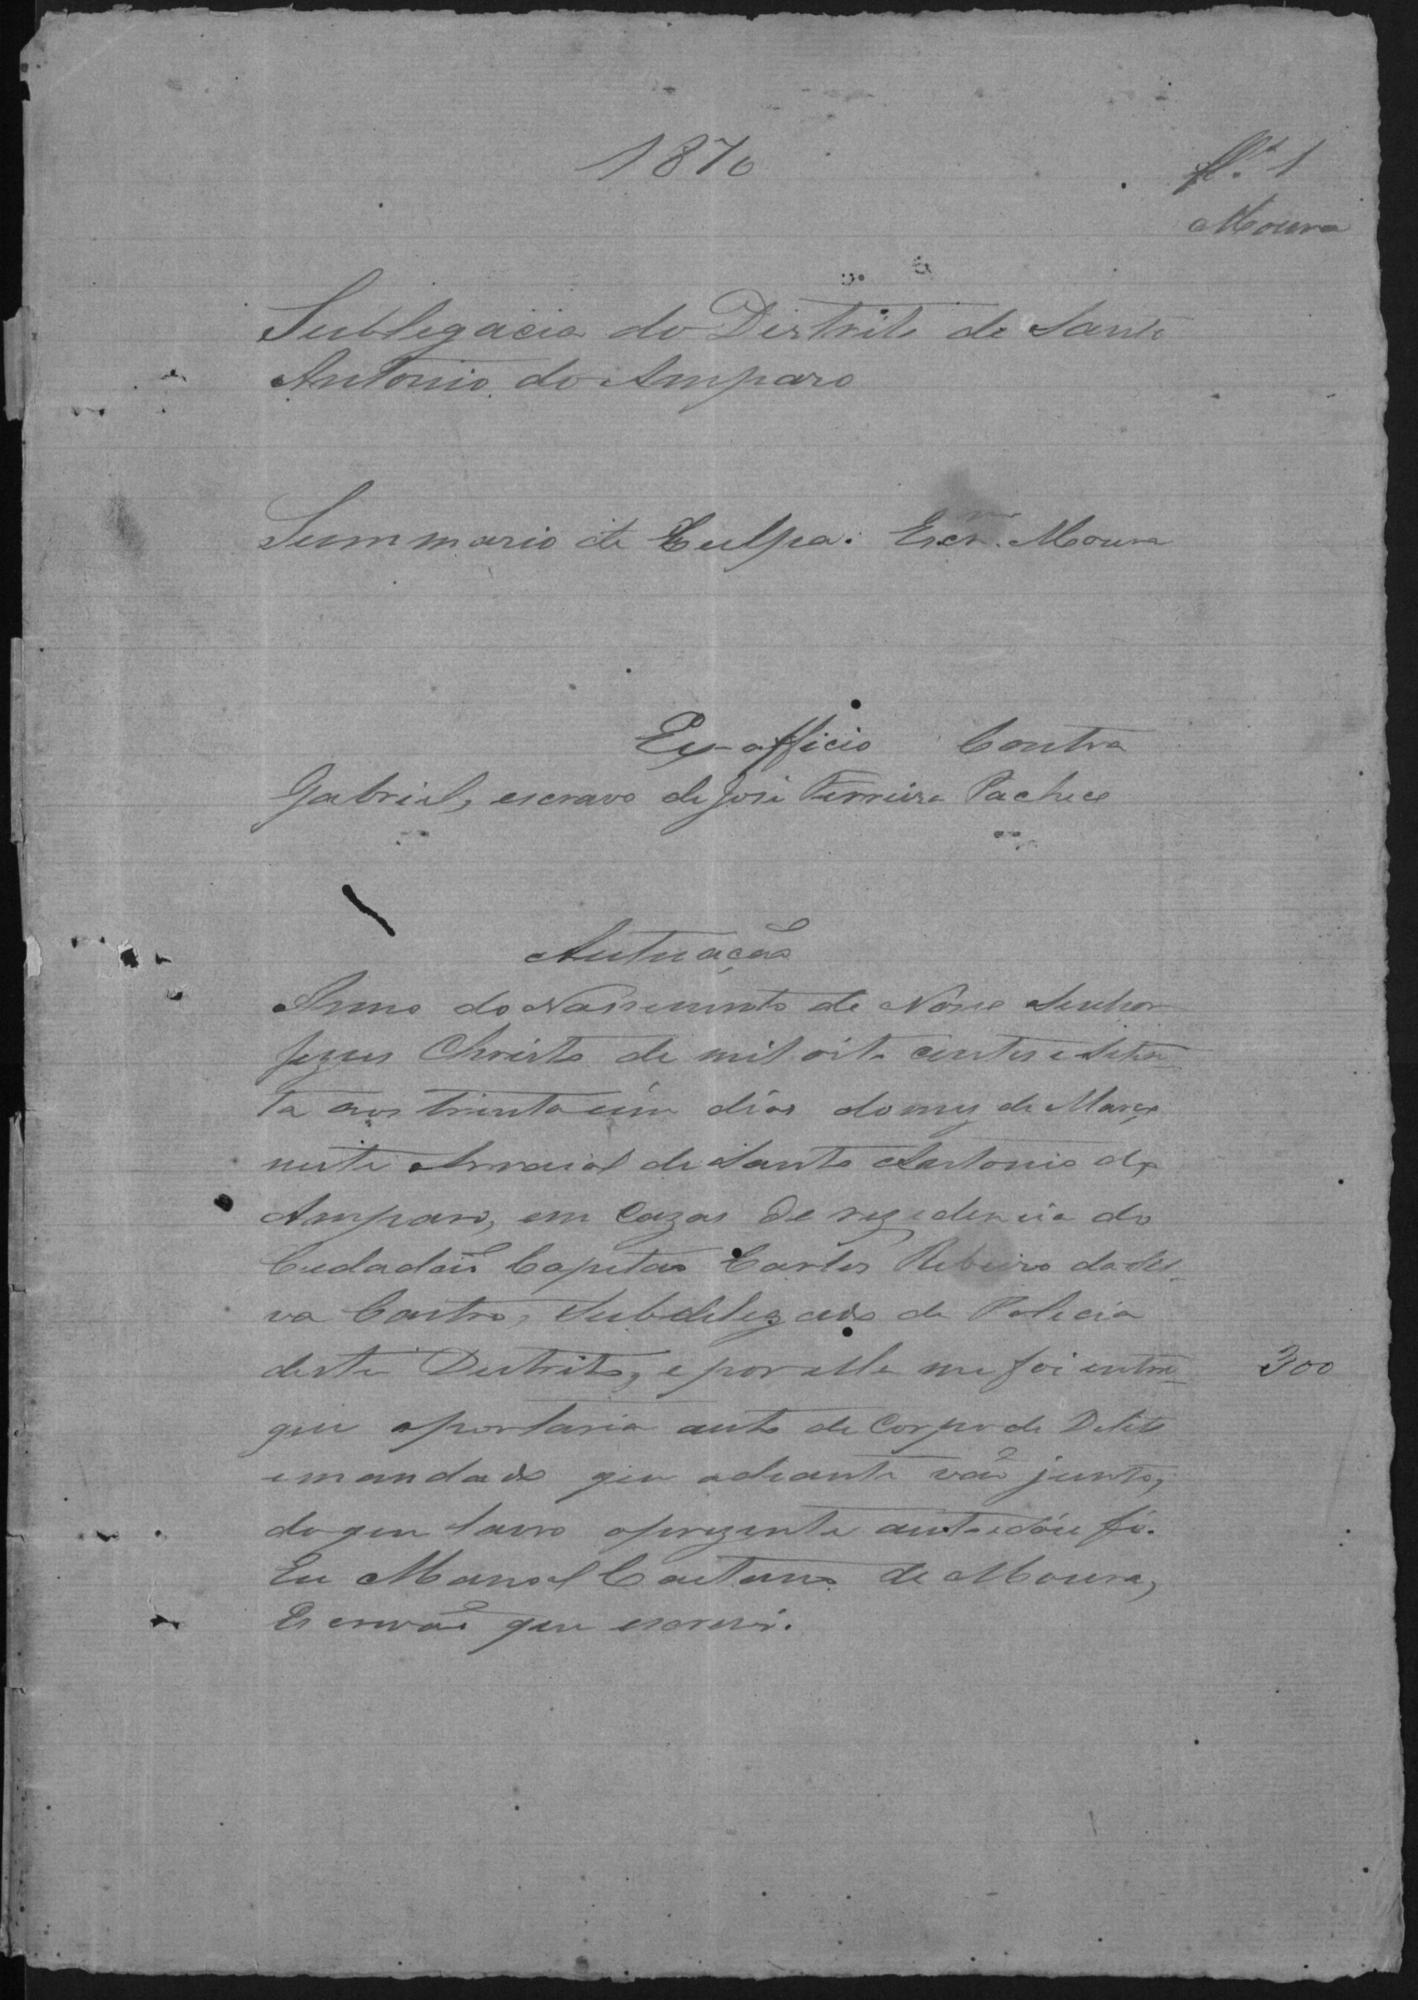 1870
fl.ª 1
Moura
Sublegacia do Distrito de Santo
Antonio do Amparo
Summario de Culpa. Escr.m Moura
Ex-officio Contra
Gabriel, escravo de José Ferreira Pacheco
Autuação
Anno do Nassimento de Nosso Senhor
Jezus Christo de mil oito centos e seten-
ta aos trinta e úm días do mez de Março
neste Arraial de Santo Antonio do
Amparo, em Cazas de rezedencia do
Cedadão Capitão Carlos Ribeiro da Sil-
va Castro, Subdelegado de Policia
deste Destrito, e por elle me foi entre-
300
gue a portaria auto de Corpo de Delito
e mandado que adiante vão junto,
do que lavro o prezente auto e dou fé.
Eu Manoel Caetano de Moura,
Escrivão que escrevi.